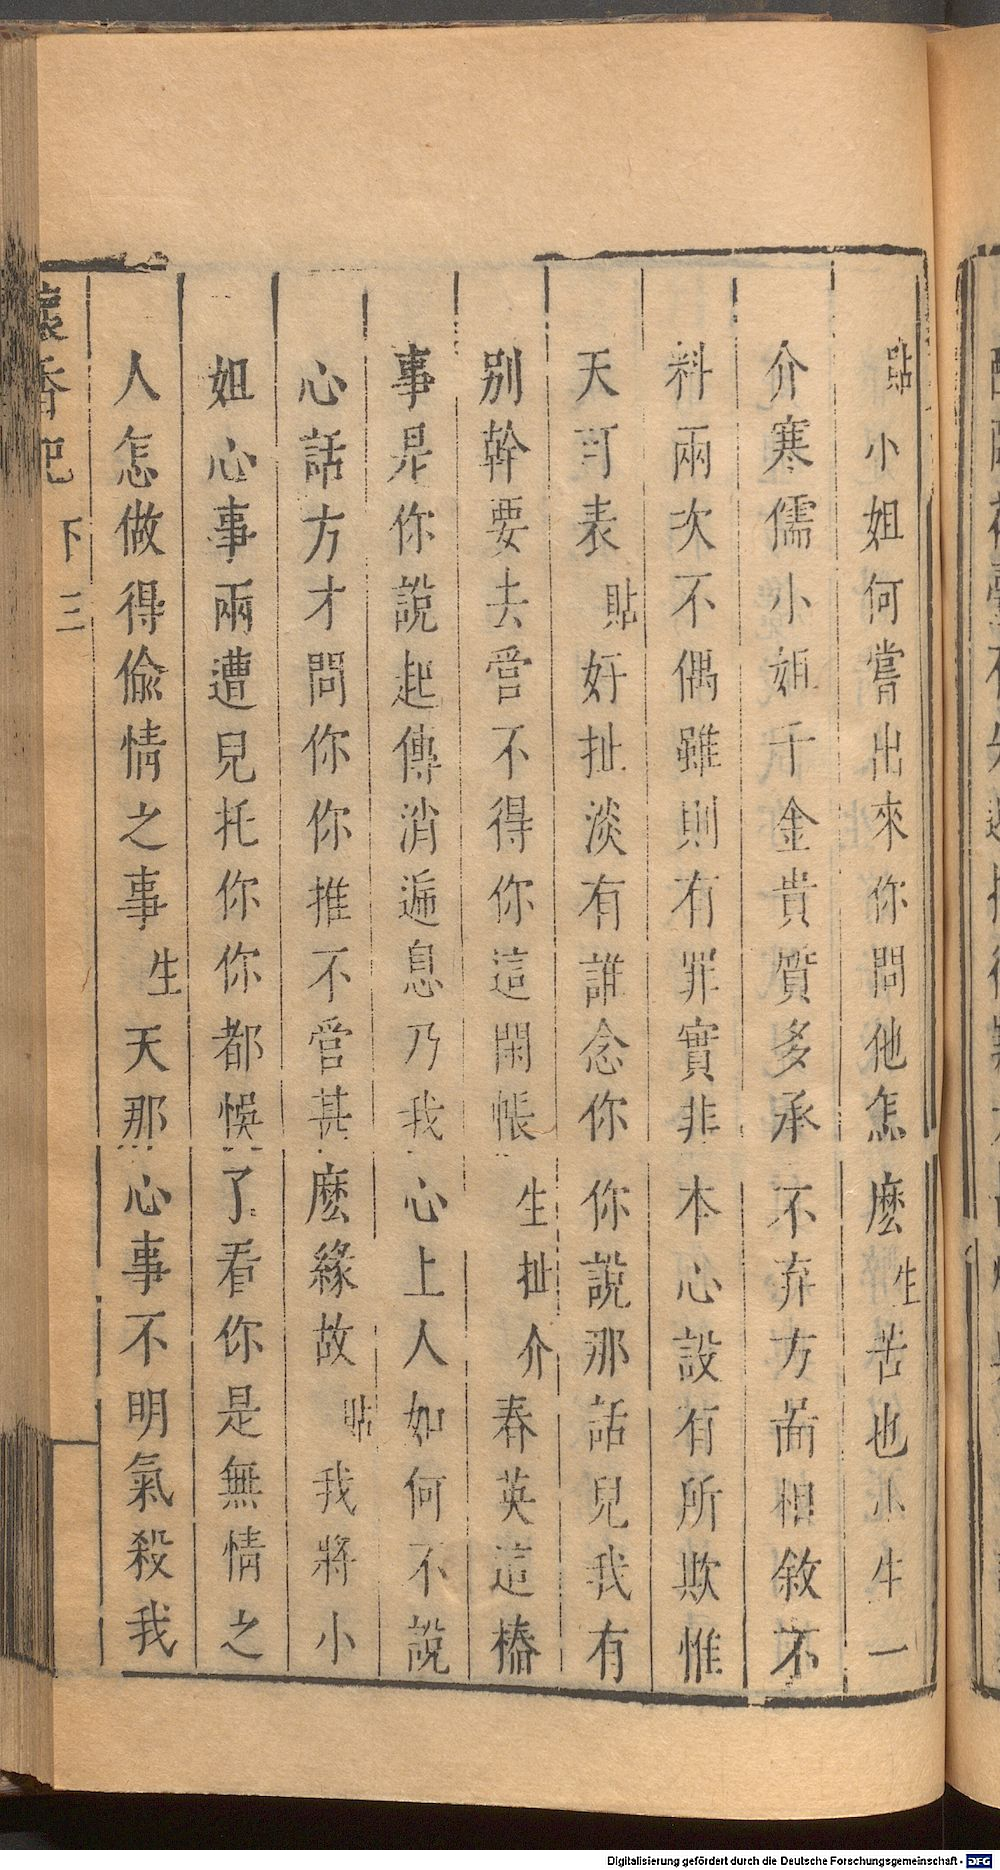 貼小姐何嘗出來你問他怎麼生苦也小生一
介寒儒小姐千金貴質多承不弃方啚相敘不
料兩次不偶雖則有罪實非本心設有所欺惟
天可表貼好扯淡有誰念你你說那話兒我有
别幹要去管不得你這閑帳生扯介春英這樁
事是你說起傳消遞息乃我心上人如何不說
心話方才問你你推不管甚麽緣故貼我將小
姐心事兩遭兒托你你都悞了看你是無情之
人怎做得偸情之事生天那心事不明氣殺我
懷香記 下 三
Digitalisierung gefördert durch die Deutsche Forschungsgemeinschaft - DFG